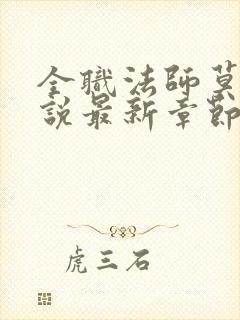 全職法師莫
說最新章節
虎三石